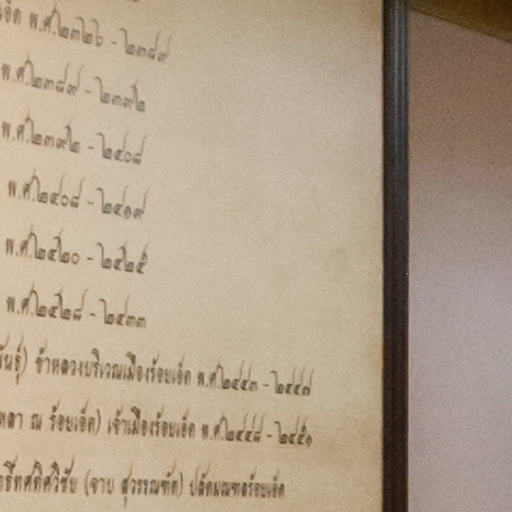 พ.ศ.๒๓๒๖ - ๒๓๘๙
พ.ศ.๒๓๘๙ - ๒๓๙๒
พ.ศ.๒๓๙๒ - ๒๔๐๘
พ.ศ.๒๔๐๘ - ๒๔๑๙
พ.ศ.๒๔๒๐ - ๒๔๒๕
พ.ศ.๒๔๒๘ - ๒๔๓๓
พันธุ์) ข้าหลวงบริเวณเมืองร้อยเอ็ด พ.ศ.๒๔๔๓ - ๒๔๔๗
ณ ร้อยเอ็ด) เจ้าเมืองร้อยเอ็ด พ.ศ.๒๔๔๘ - ๒๔๕๑
(จาบ สุวรรณทัต) ปลัดมณฑลร้อยเอ็ด